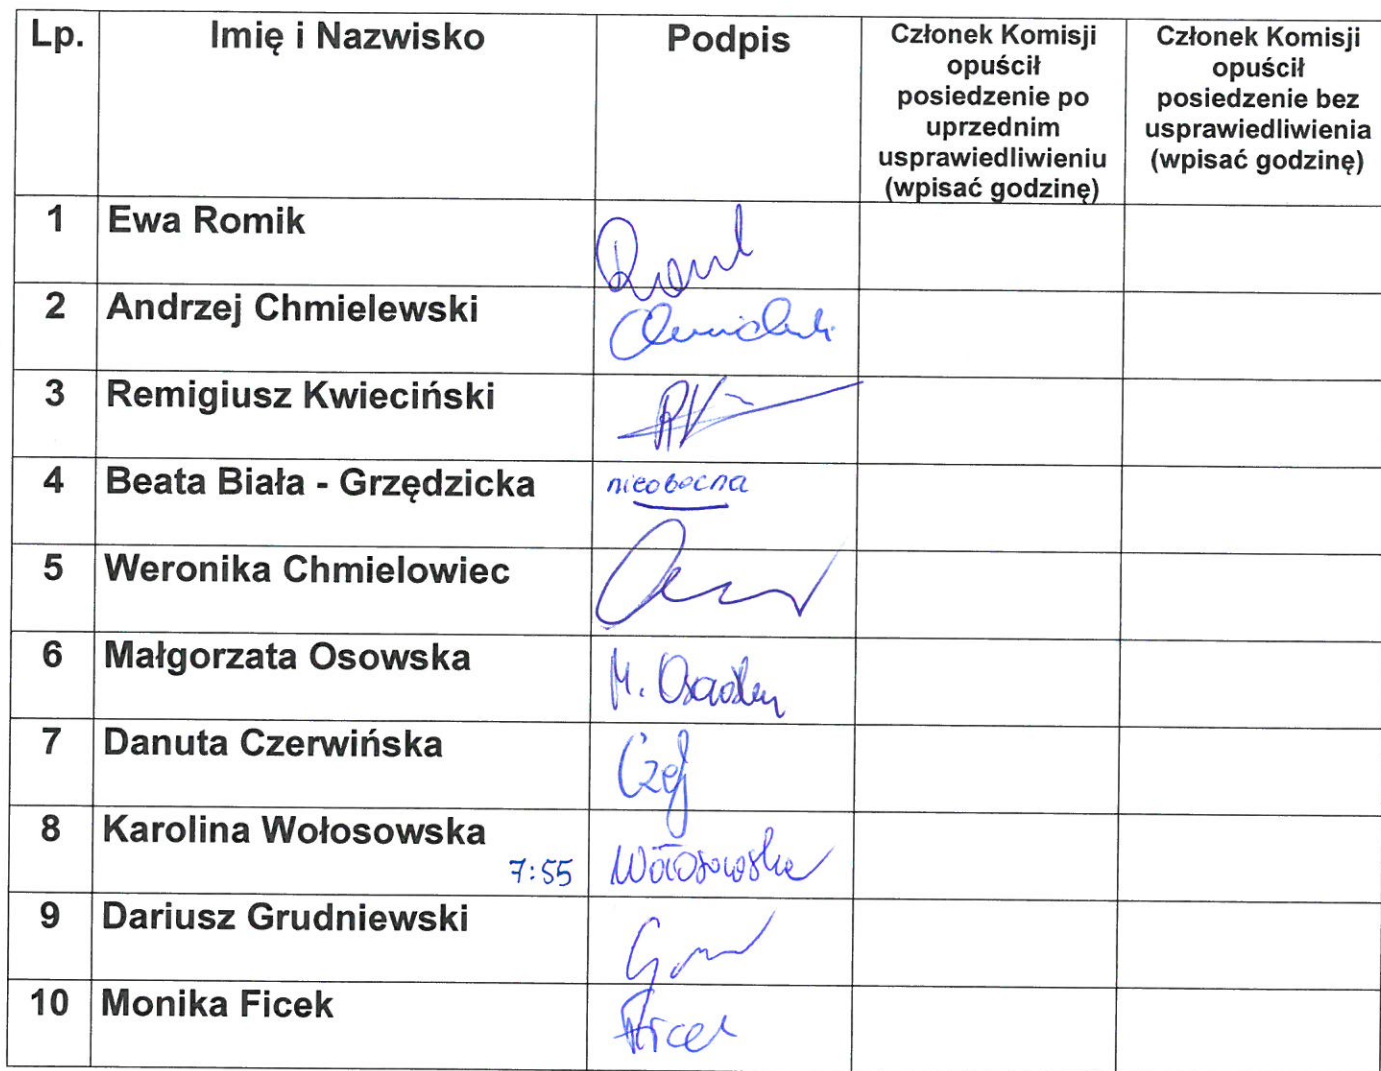 Lp.
Imię i Nazwisko
Podpis
Członek Komisji
opuścił
posiedzenie po
uprzednim
usprawiedliwieniu
(wpisać godzinę)
Członek Komisji
opuścił
posiedzenie bez
usprawiedliwienia
(wpisać godzinę)
1 Ewa Romik
2 Andrzej Chmielewski
3 Remigiusz Kwieciński
4 Beata Biała - Grzędzicka nieobecna
5 Weronika Chmielowiec
6 Małgorzata Osowska M.
7 Danuta Czerwińska
8 Karolina Wołosowska
7:55 Wołosowska
9 Dariusz Grudniewski
10 Monika Ficek Ficek